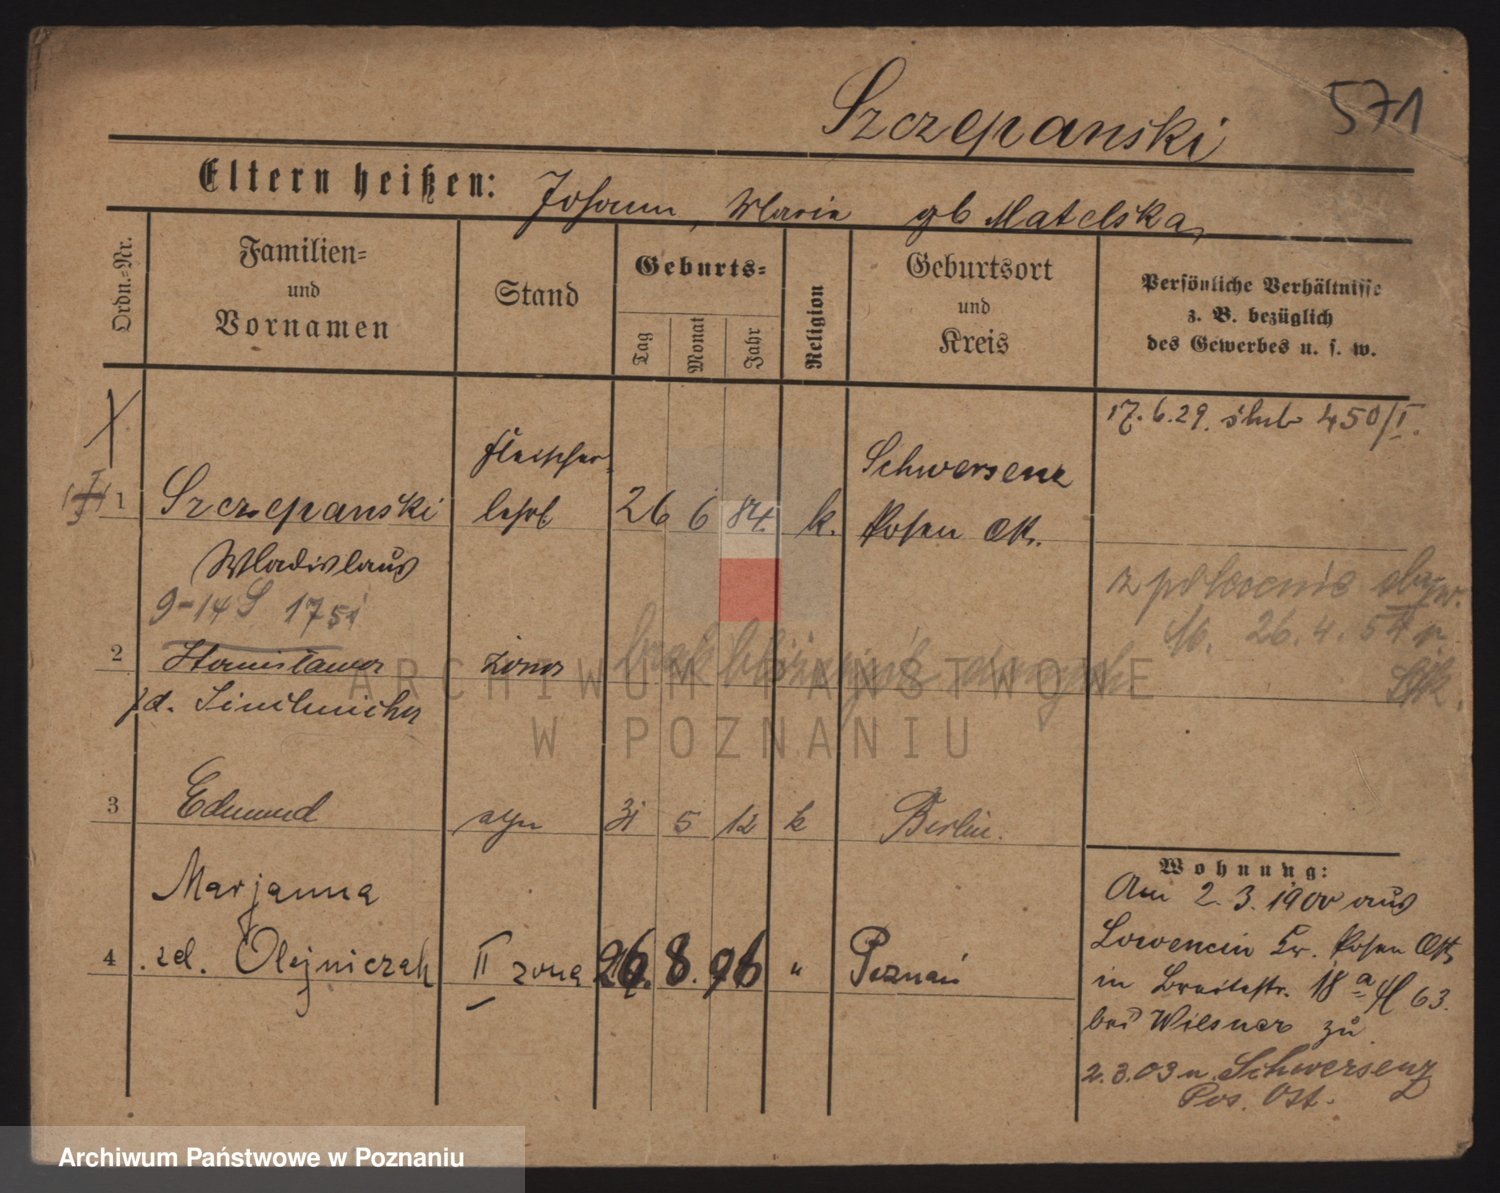 571
Szczepanski
Eltern heißen: Johann, Maria gb Matelska
Ordn.-Nr.
Familien-
und
Vornamen
Stand
Geburts-
Tag
Monat
Jahr
Religion
Geburtsort
und
Kreis
Persönliche Verhältnisse
z. B. bezüglich
des Gewerbes u. s. w.
17. 6. 29. ślub 450/I.
Fleischer-
Schwersenz
1 Szczepanski lehrl 26 6 84. k. Posen Ost.
Wladislaus
9-14 S 1751
z polecenia
26. 4. 54 r
2 Stanisława żona brak bliższych danych
zd.
3 Edmund syn 31 5 12 k Berlin.
Marjanna
4 zd. Olejniczak II żona 26. 8. 96 " Poznań
Wohnung:
Am 2. 3. 1900 aus
Lowencin Kr. Posen Ost
in Breitestr. 18 a 63.
bei Wiesner zu
2. 3. 03 n. Schwersenz
Pos. Ost.
ARCHIWUM PAŃSTWOWE
W POZNANIU
Archiwum Państwowe w Poznaniu